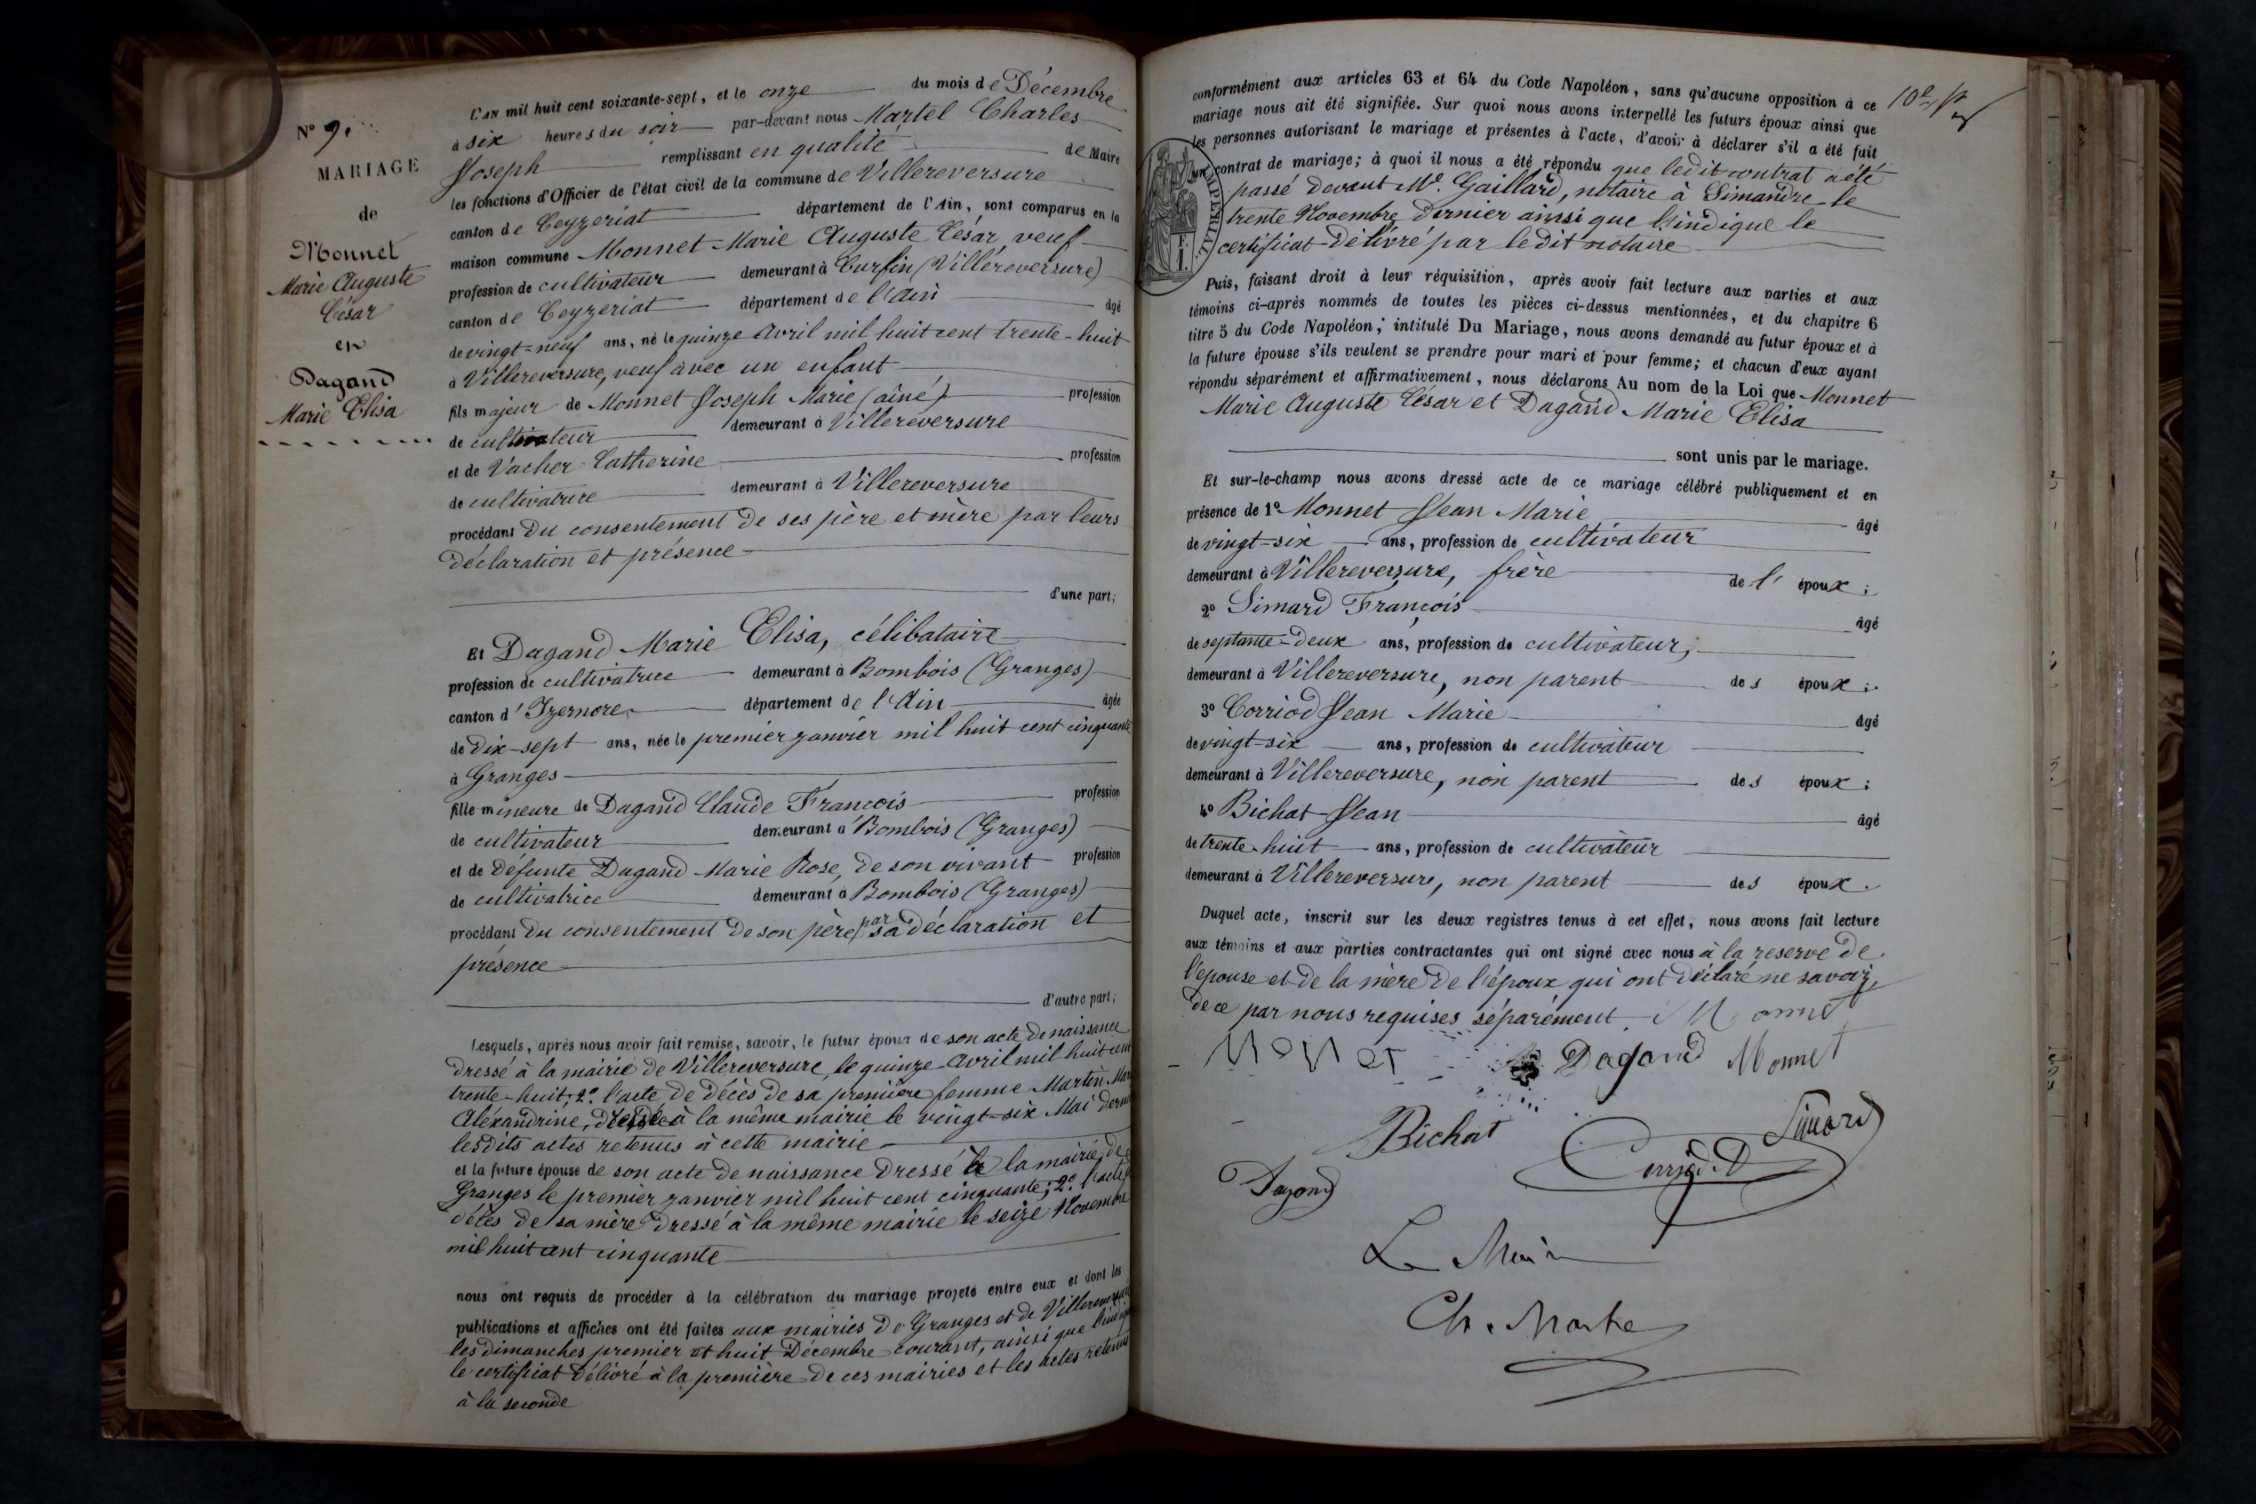 N° 9.
MARIAGE
de
Monnet
Marie Auguste
César
et
Dagand
Marie Elisa
L'AN mil huit cent soixante-sept, et le onze du mois de Décembre
à six heures du soir par-devant nous Martel Charles
Joseph remplissant en qualité de Maire
les fonctions d'Officier de l'état civil de la commune de Villereversure
canton de Ceyzeriat département de l'Ain, sont comparus en la
maison commune Monnet Marie Auguste César, veuf
profession de cultivateur demeurant à Curfin (Villereversure)
canton de Ceyzeriat département de l'Ain âgé
de vingt-neuf ans, né le quinze Avril mil huit cent trente-huit
à Villereversure, veuf avec un enfant
fils majeur de Monnet Joseph Marie (aîné) profession
de cultivateur demeurant à Villereversure
et de Vacher Catherine profession
de cultivatrice demeurant à Villereversure
procédant du consentement de ses père et mère par leurs
déclaration et présence
d'une part;
Et Dagand Marie Elisa, célibataire
profession de cultivatrice demeurant à Bombois (Granges)
canton d'Izernore département de l'Ain âgée
de dix-sept ans, née le premier janvier mil huit cent cinquante
à Granges
fille mineure de Dagand Claude François profession
de cultivateur demeurant à Bombois (Granges)
et de défunte Dagand Marie Rose, de son vivant profession
de cultivatrice demeurant à Bombois (Granges)
procédant du consentement de son père par sa déclaration et
présence
d'autre part;
Lesquels, après nous avoir fait remise, savoir, le futur époux de son acte de naissance
dressé à la mairie de Villereversure, le quinze Avril mil huit cent
trente-huit; 2° l'acte de décès de sa première femme Martin
Aléxandrine, à la même mairie le vingt-six Mai
lesdits actes retenus à cette mairie
et la future épouse de son acte de naissance dressé à la mairie de
Granges le premier janvier mil huit cent cinquante; 2° l'acte
décès de sa mère dressé à la même mairie le seize Novembre
mil huit cent cinquante
nous ont requis de procéder à la célébration du mariage projeté entre eux et dont les
publications et affiches ont été faites aux mairies de Granges et de Villereversure
les dimanches premier et huit Décembre courant, ainsi que l'indique
le certificat délivré à la première de ces mairies et les actes retenus
à la seconde
conformément aux articles 63 et 64 du Code Napoléon, sans qu'aucune opposition à ce
mariage nous ait été signifiée. Sur quoi nous avons interpellé les futurs époux ainsi que
les personnes autorisant le mariage et présentes à l'acte, d'avoir à déclarer s'il a été fait
un contrat de mariage; à quoi il nous a été répondu que ledit contrat a été
passé devant Me. Gaillard, notaire à Simandre le
trente Novembre dernier ainsi que l'indique le
certificat délivré par ledit notaire
IMPÉRIAL
Puis, faisant droit à leur réquisition, après avoir fait lecture aux parties et aux
témoins ci-après nommés de toutes les pièces ci-dessus mentionnées, et du chapitre 6
titre 5 du Code Napoléon, intitulé Du Mariage, nous avons demandé au futur époux et à
la future épouse s'ils veulent se prendre pour mari et pour femme; et chacun d'eux ayant
répondu séparément et affirmativement, nous déclarons Au nom de la Loi que Monnet
Marie Auguste César et Dagand Marie Elisa
sont unis par le mariage.
Et sur-le-champ nous avons dressé acte de ce mariage célébré publiquement et en
présence de 1° Monnet Jean Marie âgé
de vingt-six ans, profession de cultivateur
demeurant à Villereversure, frère de l'époux;
2° Simard François âgé
de septante-deux ans, profession de cultivateur,
demeurant à Villereversure, non parent des époux;
3° Corriod Jean Marie âgé
de vingt-six ans, profession de cultivateur
demeurant à Villereversure, non parent des époux;
4° Bichat Jean âgé
de trente-huit ans, profession de cultivateur
demeurant à Villereversure, non parent des époux.
Duquel acte, inscrit sur les deux registres tenus à cet effet, nous avons fait lecture
aux témoins et aux parties contractantes qui ont signé avec nous à la reserve de
l'épouse et de la mère de l'époux qui ont déclaré ne savoir,
de ce par nous requises séparément. Monnet
Monet Dagand Monnet
Bichat Corriod Simard
Dagand
Le Maire
Ch. Martel